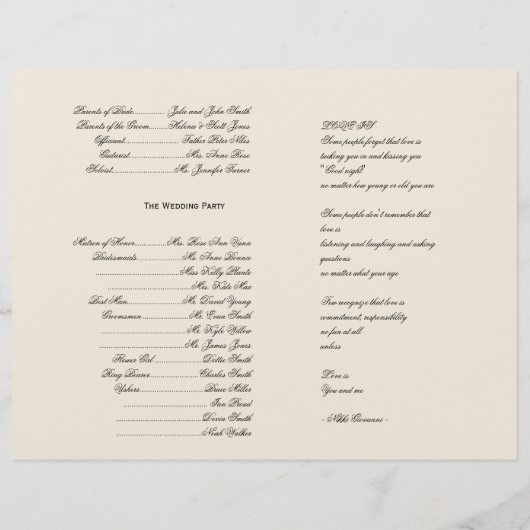 Parents of Bride............... Julie and John Smith
Parents of the Groom........Helena & Scott Jones
Officiant.................... Father Peter Niles
Guitarist.................... Mrs. Anne Rose
Soloist.....................Ms. Jennifer Turner
The Wedding Party
Matron of Honor...........Mrs. Rose Ann Vann
Bridesmaids................. Ms. Anne Bonnie
..............................Miss Kelly Plante
.................................Mrs. Kate Max
Best Man.................Mr. David Young
Groomsmen................ Mr. Evan Smith
..............................Mr. Kyle Willow
..............................Mr. James Jones
Flower Girl................. Dottie Smith
Ring Bearer................Charles Smith
Ushers......................Bruce Miller
.............................. Ian Proud
..............................Devin Smith
..............................Noah Walker
LOVE IS
Some people forget that love is
tucking you in and kissing you
"Good night"
no matter how young or old you are
Some people don't remember that
love is
listening and laughing and asking
questions
no matter what your age
Few recognize that love is
commitment, responsibility
no fun at all
unless
Love is
You and me
- Nikki Giovanni -